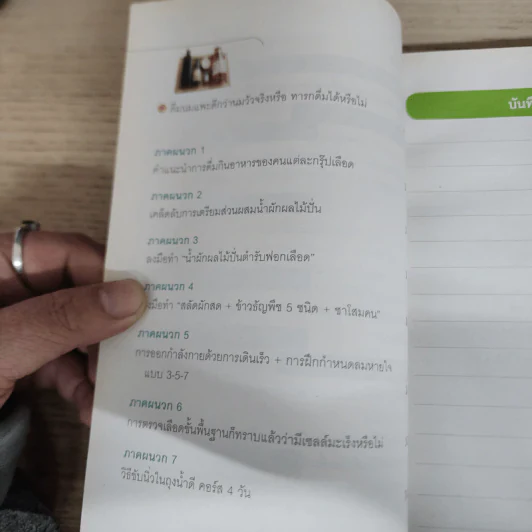 ดื่มนมแพะดีกว่านมวัวจริงหรือ ทารกดื่มได้หรือไม่
ภาคผนวก 1
คำแนะนำการดื่มกินอาหารของคนแต่ละกรุ๊ปเลือด
ภาคผนวก 2
เคล็ดลับการเตรียมส่วนผสมน้ำผักผลไม้ปั่น
ภาคผนวก 3
ลงมือทำ "น้ำผักผลไม้ปั่นตำรับฟอกเลือด"
ภาคผนวก 4
ลงมือทำ "สลัดผักสด + ข้าวธัญพืช 5 ชนิด + ชาโสมคน"
ภาคผนวก 5
การออกกำลังกายด้วยการเดินเร็ว + การฝึกกำหนดลมหายใจ
แบบ 3-5-7
ภาคผนวก 6
การตรวจเลือดขั้นพื้นฐานก็ทราบแล้วว่ามีเซลล์มะเร็งหรือไม่
ภาคผนวก 7
วิธีขับนิ่วในถุงน้ำดี คอร์ส 4 วัน